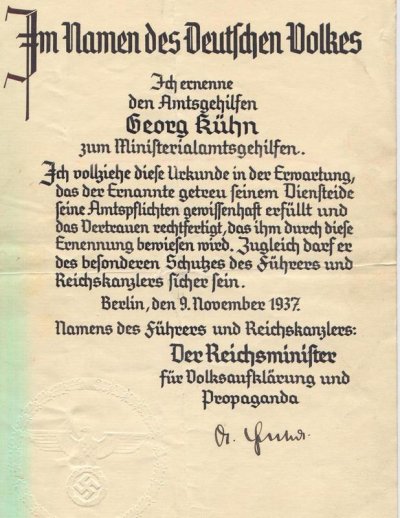 Im Namen des Deutschen Volkes
Ich ernenne
den Amtsgehilfen
Georg Kühn
zum Ministerialamtsgehilfen.
Ich vollziehe diese Urkunde in der Erwartung,
das der Ernannte getreu seinem Diensteide
seine Amtspflichten gewissenhaft erfüllt und
das Vertrauen rechtfertigt, das ihm durch diese
Ernennung bewiesen wird. Zugleich darf er
des besonderen Schutzes des Führers und
Reichskanzlers sicher sein.
Berlin, den 9. November 1937.
Namens des Führers und Reichskanzlers:
Der Reichsminister
für Volksaufklärung und
Propaganda
Dr.